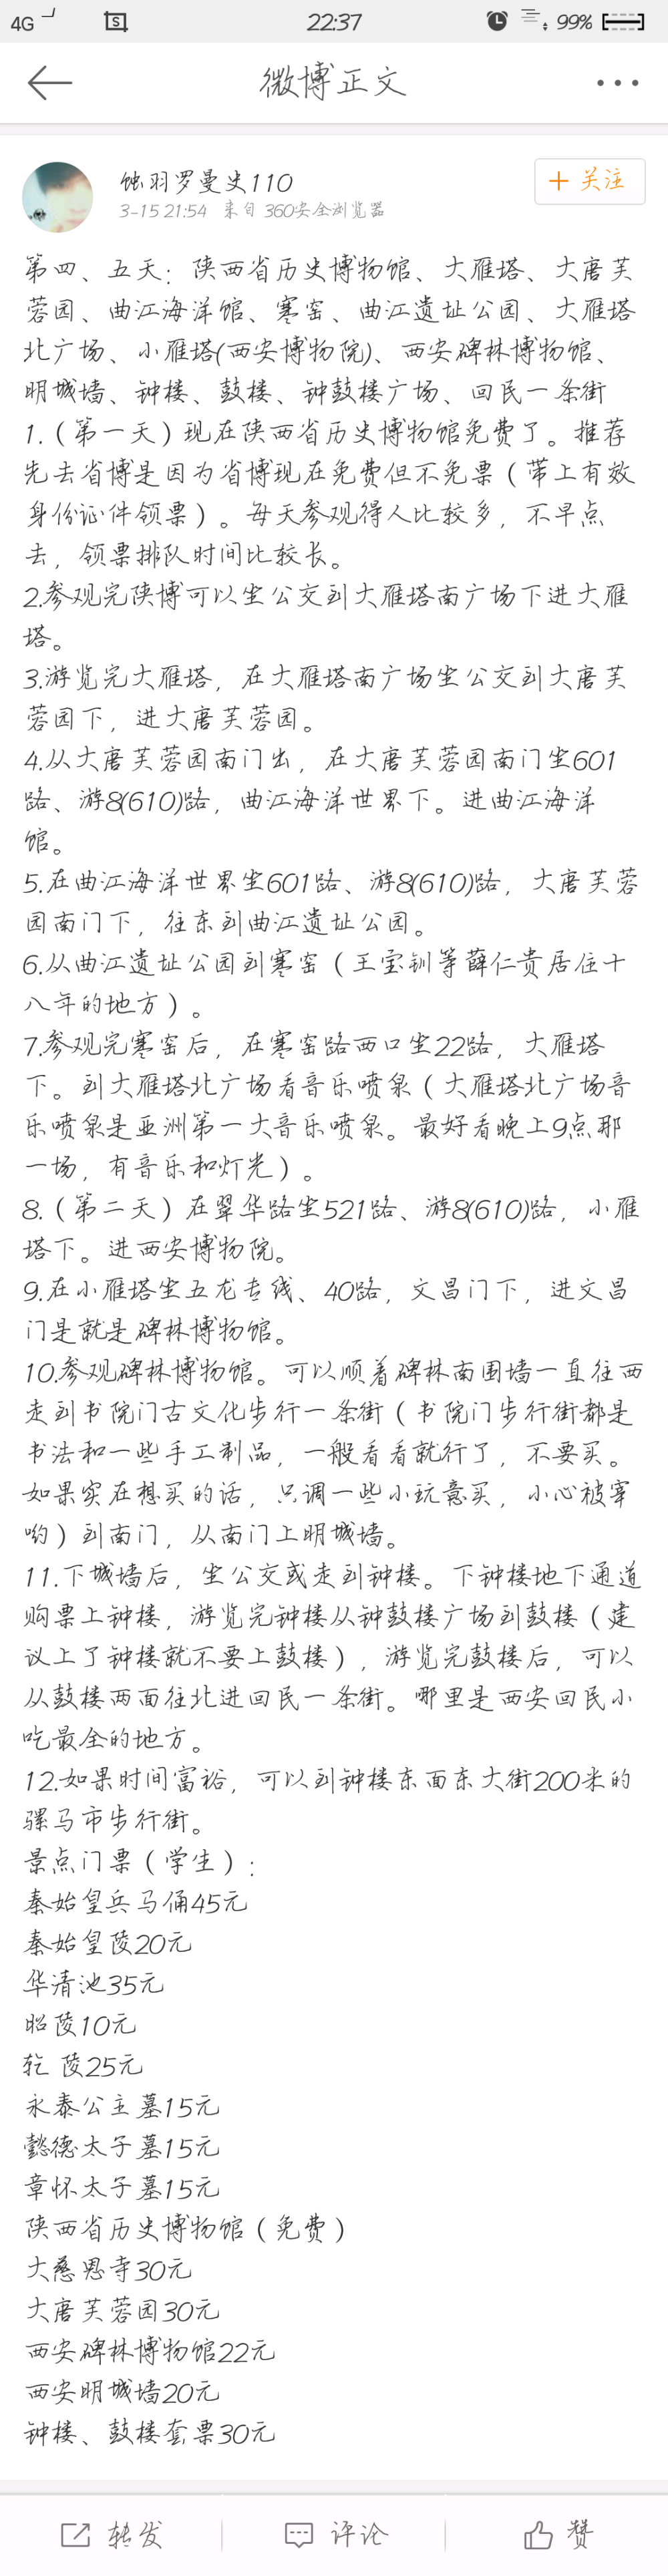 4G 22:37 99%
微博正文
蚀羽罗曼史110
3-15 21:54 来自 360安全浏览器
+ 关注
第四、五天：陕西省历史博物馆、大雁塔、大唐芙
蓉园、曲江海洋馆、寒窑、曲江遗址公园、大雁塔
北广场、小雁塔(西安博物院)、西安碑林博物馆、
明城墙、钟楼、鼓楼、钟鼓楼广场、回民一条街
1.（第一天）现在陕西省历史博物馆免费了。推荐
先去省博是因为省博现在免费但不免票（带上有效
身份证件领票）。每天参观得人比较多，不早点
去，领票排队时间比较长。
2.参观完陕博可以坐公交到大雁塔南广场下进大雁
塔。
3.游览完大雁塔，在大雁塔南广场坐公交到大唐芙
蓉园下，进大唐芙蓉园。
4.从大唐芙蓉园南门出，在大唐芙蓉园南门坐601
路、游8(610)路，曲江海洋世界下。进曲江海洋
馆。
5.在曲江海洋世界坐601路、游8(610)路，大唐芙蓉
园南门下，往东到曲江遗址公园。
6.从曲江遗址公园到寒窑（王宝钏等薛仁贵居住十
八年的地方）。
7.参观完寒窑后，在寒窑路西口坐22路，大雁塔
下。到大雁塔北广场看音乐喷泉（大雁塔北广场音
乐喷泉是亚洲第一大音乐喷泉。最好看晚上9点那
一场，有音乐和灯光）。
8.（第二天）在翠华路坐521路、游8(610)路，小雁
塔下。进西安博物院。
9.在小雁塔坐五龙专线、40路，文昌门下，进文昌
门是就是碑林博物馆。
10.参观碑林博物馆。可以顺着碑林南围墙一直往西
走到书院门古文化步行一条街（书院门步行街都是
书法和一些手工制品，一般看看就行了，不要买。
如果实在想买的话，只调一些小玩意买，小心被宰
哟）到南门，从南门上明城墙。
11.下城墙后，坐公交或走到钟楼。下钟楼地下通道
购票上钟楼，游览完钟楼从钟鼓楼广场到鼓楼（建
议上了钟楼就不要上鼓楼），游览完鼓楼后，可以
从鼓楼西面往北进回民一条街。哪里是西安回民小
吃最全的地方。
12.如果时间富裕，可以到钟楼东面东大街200米的
骡马市步行街。
景点门票（学生）：
秦始皇兵马俑45元
秦始皇陵20元
华清池35元
昭陵10元
乾 陵25元
永泰公主墓15元
懿德太子墓15元
章怀太子墓15元
陕西省历史博物馆（免费）
大慈恩寺30元
大唐芙蓉园30元
西安碑林博物馆22元
西安明城墙20元
钟楼、鼓楼套票30元
转发 评论 赞